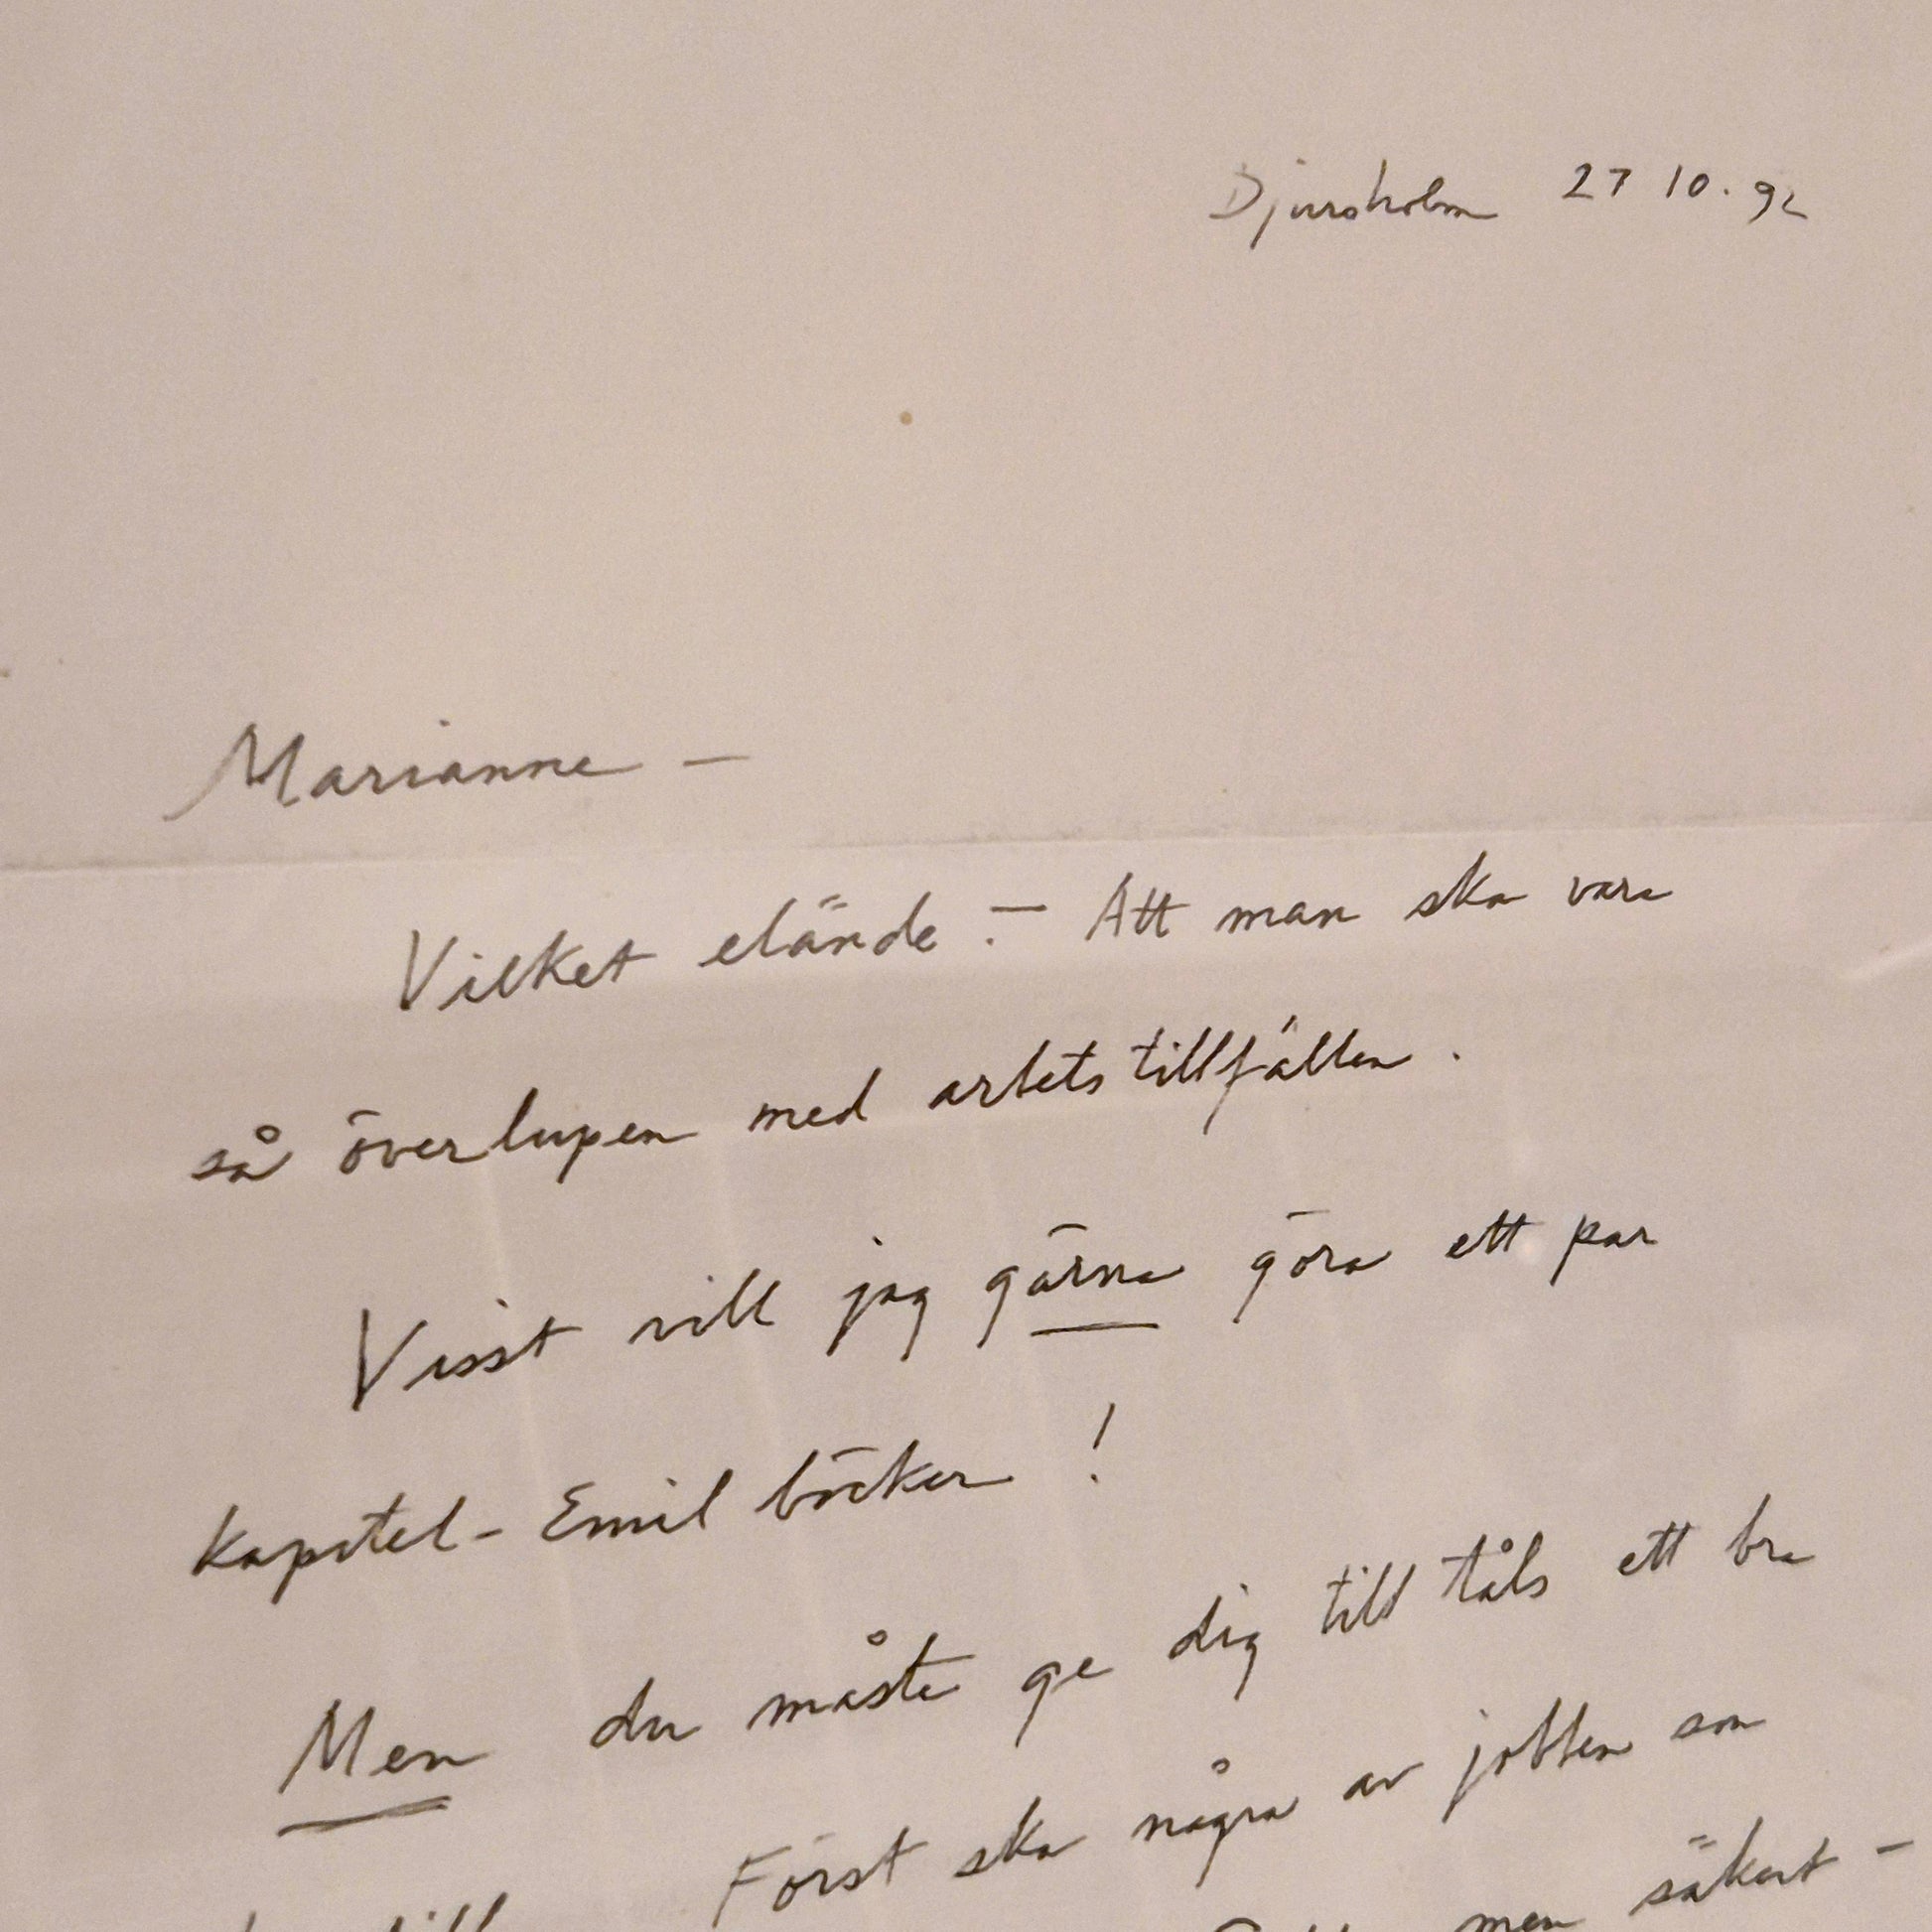 Djursholm 27 10. 92
Marianne –
Vilket elände. – Att man ska vara
så överlupen med arbetstillfällen.
Visst vill jag gärna göra ett par
kapitel- Emil böcker!
Men du måste ge dig till tåls ett bra
Först ska några av jobben som
men säkert –